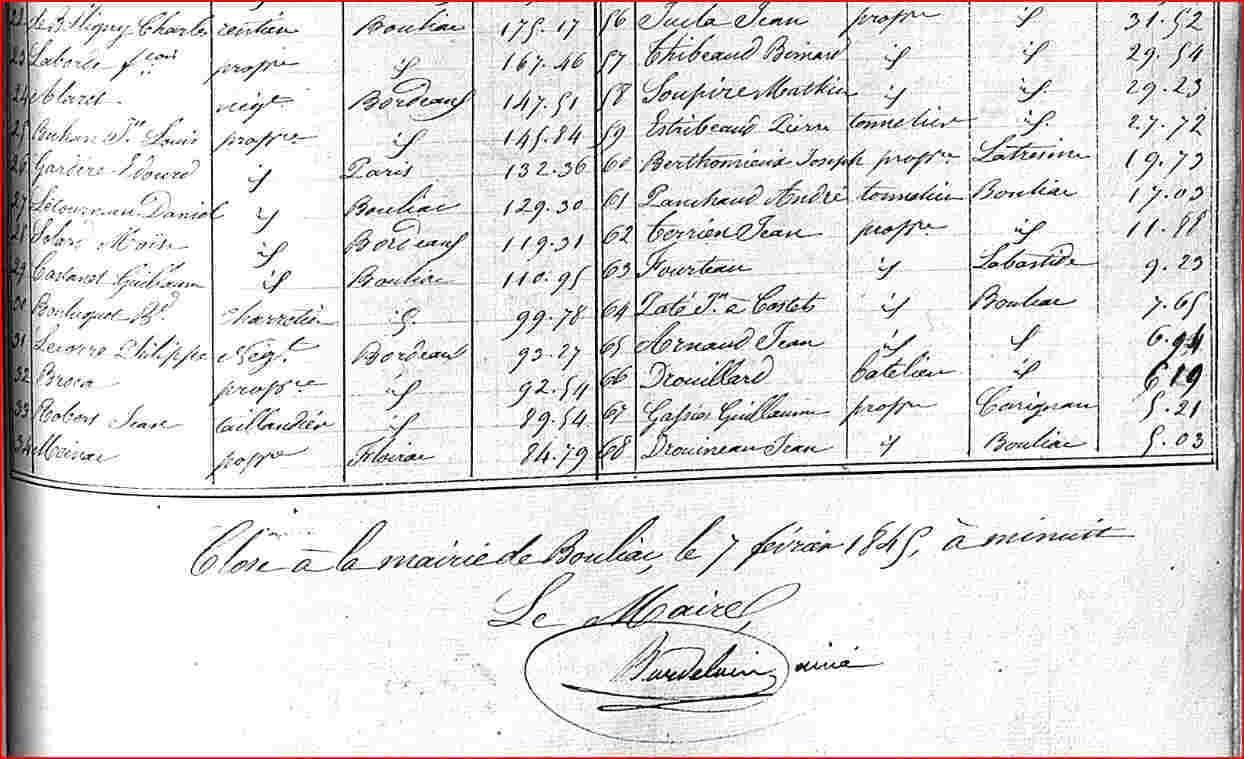 22 Charles rentier Bouliac 175.17
23 Laborde fcois proppre id 167.46
24 négt Bordeaux 147.51
25 Buhan Jne Louis proppre id 145.84
26 Gardère Edouard id Paris 132.36
27 Létourneau Daniel id Bouliac 129.30
28 Solard Moïse id Bordeaux 119.31
29 Castanet Guillaume id Bouliac 110.95
30 Bd charretier id. 99.78
31 Lecorre Philippe Négt Bordeaux 93.27
32 Broca proppre id 92.54
33 Robert Jean taillandier id 89.54
34 proppre Floirac 84.79
56 Jean proppre id 31.52
57 Thibeaud Bernard id id 29.54
58 Soupire Mathieu id id 29.23
59 Estribeaud Pierre tonnelier id 27.72
60 Berthomieux Joseph proppre Latresne 19.73
61 Panchaud André tonnelier Bouliac 17.03
62 Terrien Jean proppre id 11.88
63 Fourteau id Labastide 9.23
64 Paté Jn à Costets id Bouliac 7.65
65 Arnaud Jean id id 6.94
66 Drouillard batelier id 6 19
67 Gassies Guillaume proppre Carignan 5.21
68 Drouineau Jean id Bouliac 5.03
Close à la mairie de Bouliac, le 7 février 1845, à minuit
Le Maire,
ainé